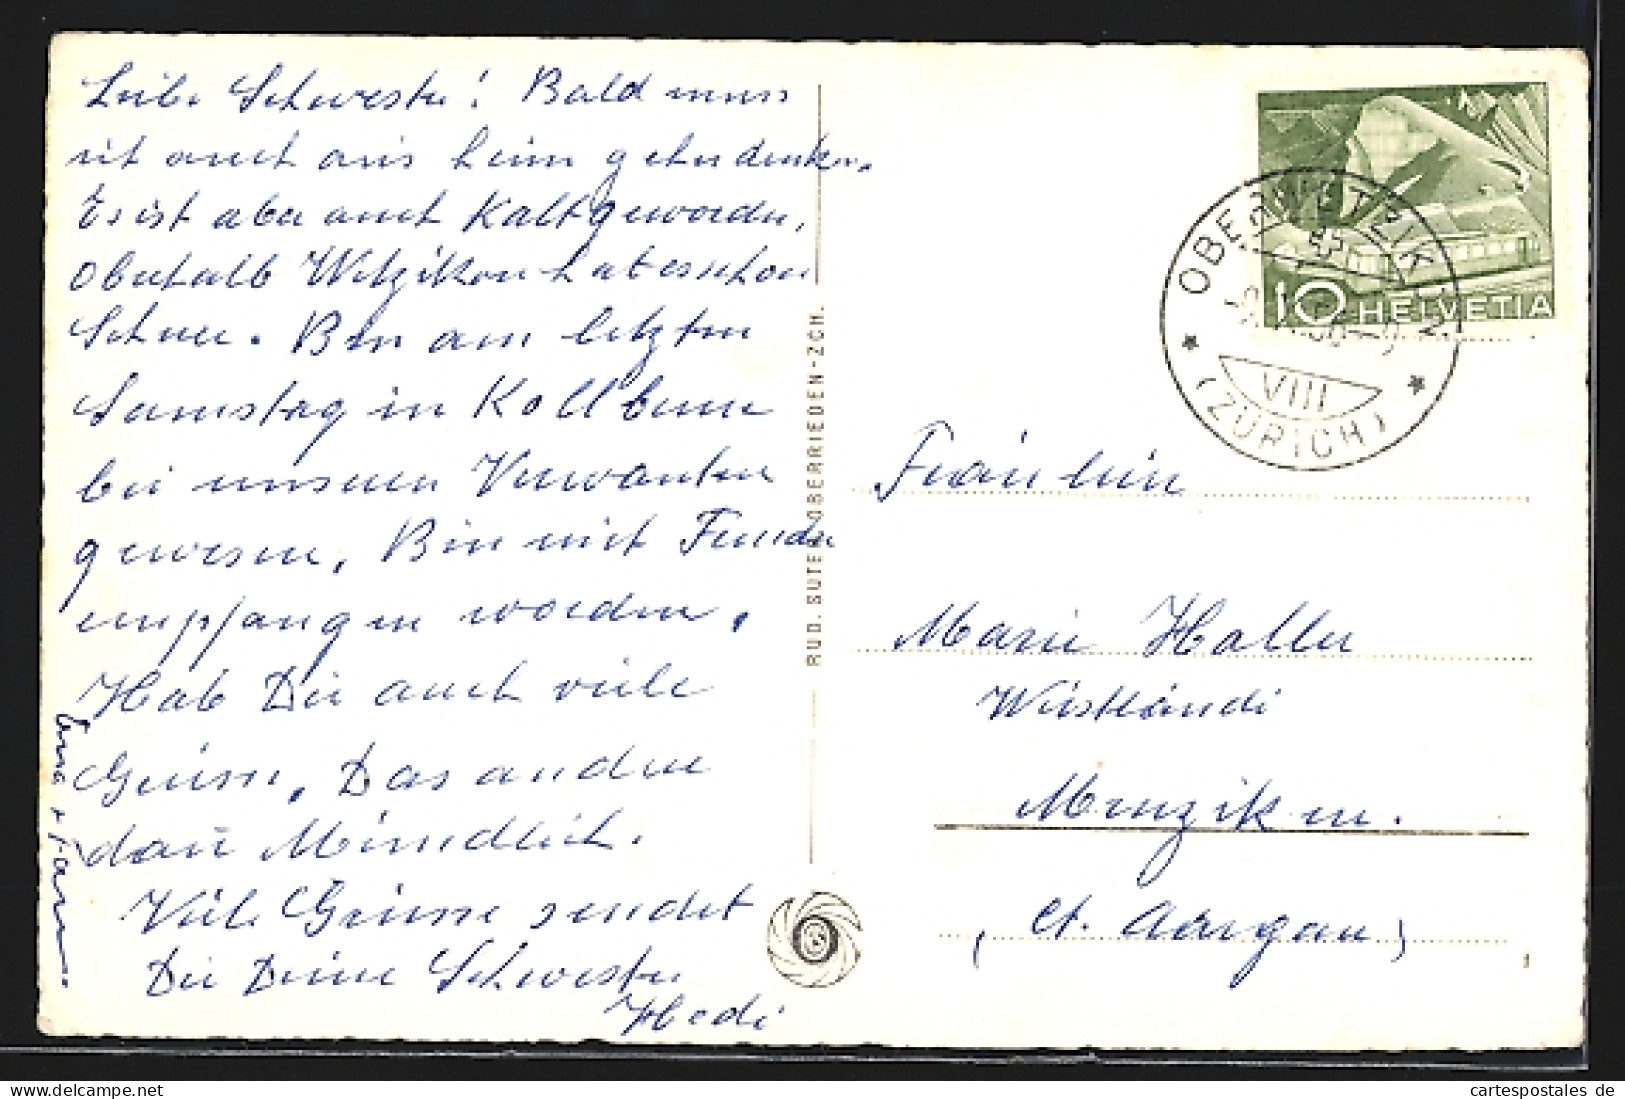 Liebe Schwester! Bald muss
ich auch ans heim gehn denken.
Es ist aber auch Kalt geworden,
oberhalb Wetzikon hat es schon
Schnee. Bin am letzten
Samstag in Kollbrunn
bei unseren Verwanten
gewesen, Bin mit Freuden
empfangen worden.
Hab Dir auch viele
Grüsse, Das andere
dan Mündlich.
Viele Grüsse sendet
Dir Deine Schwester
Hedi
RUD. SUTER OBERRIEDEN-ZCH.
OBERWETZIKON
VIII
(ZÜRICH)
10 HELVETIA
Fräulein
Marie Haller
Wüsthäusli
Menziken.
(Ct. Aargau)
cartespostales de